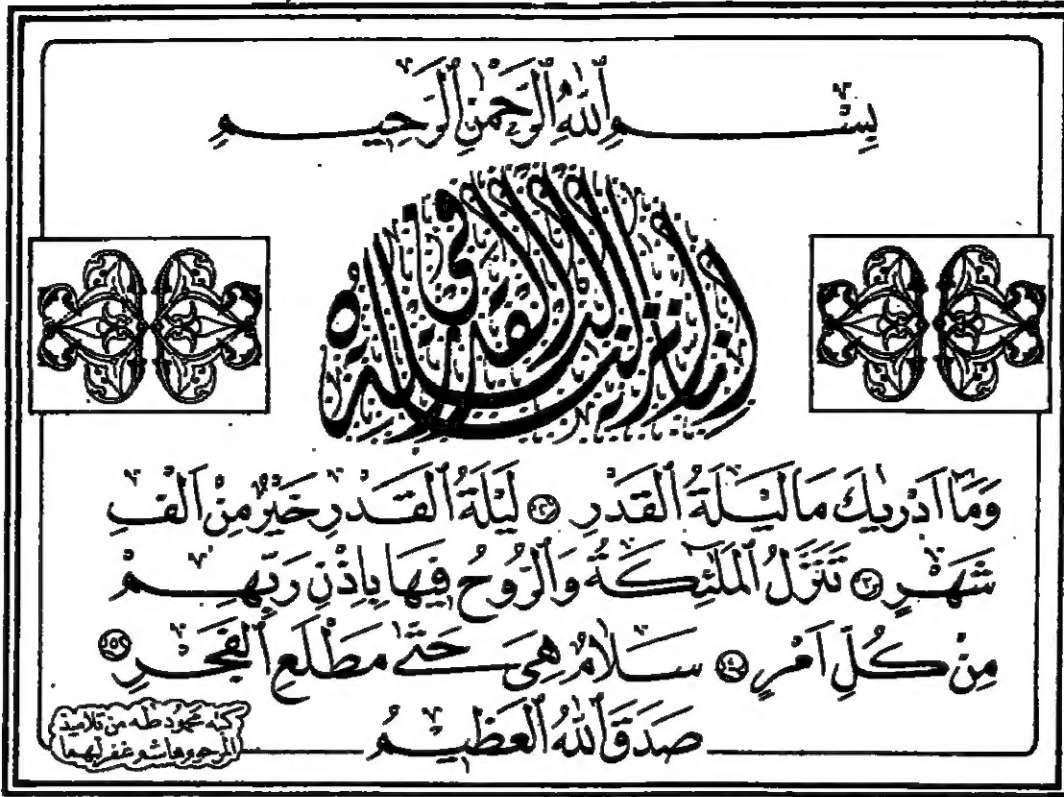 بِسْمِ ٱللَّهِ ٱلرَّحْمٰنِ ٱلرَّحِيمِ
إنا أنزلنه في ليلة القدر
وَمَآ اَدْرٰىكَ مَا لَيْلَةُ ٱلْقَدْرِ ۝٢ لَيْلَةُ ٱلْقَدْرِ خَيْرٌ مِنْ اَلْفِ
شَهْرٍ ۝٣ تَنَزَّلُ ٱلْمَلٰٓئِكَةُ وَٱلرُّوحُ فِيهَا بِاِذْنِ رَبِّهِمْ
مِنْ كُلِّ اَمْرٍ ۝٤ سَلَامٌ هِىَ حَتّٰى مَطْلَعِ ٱلْفَجْرِ ۝٥
صَدَقَ ٱللَّهُ ٱلْعَظِيمُ
كتبه محمود طه من تلاميذ
المرحوم هاشم غفر لهما